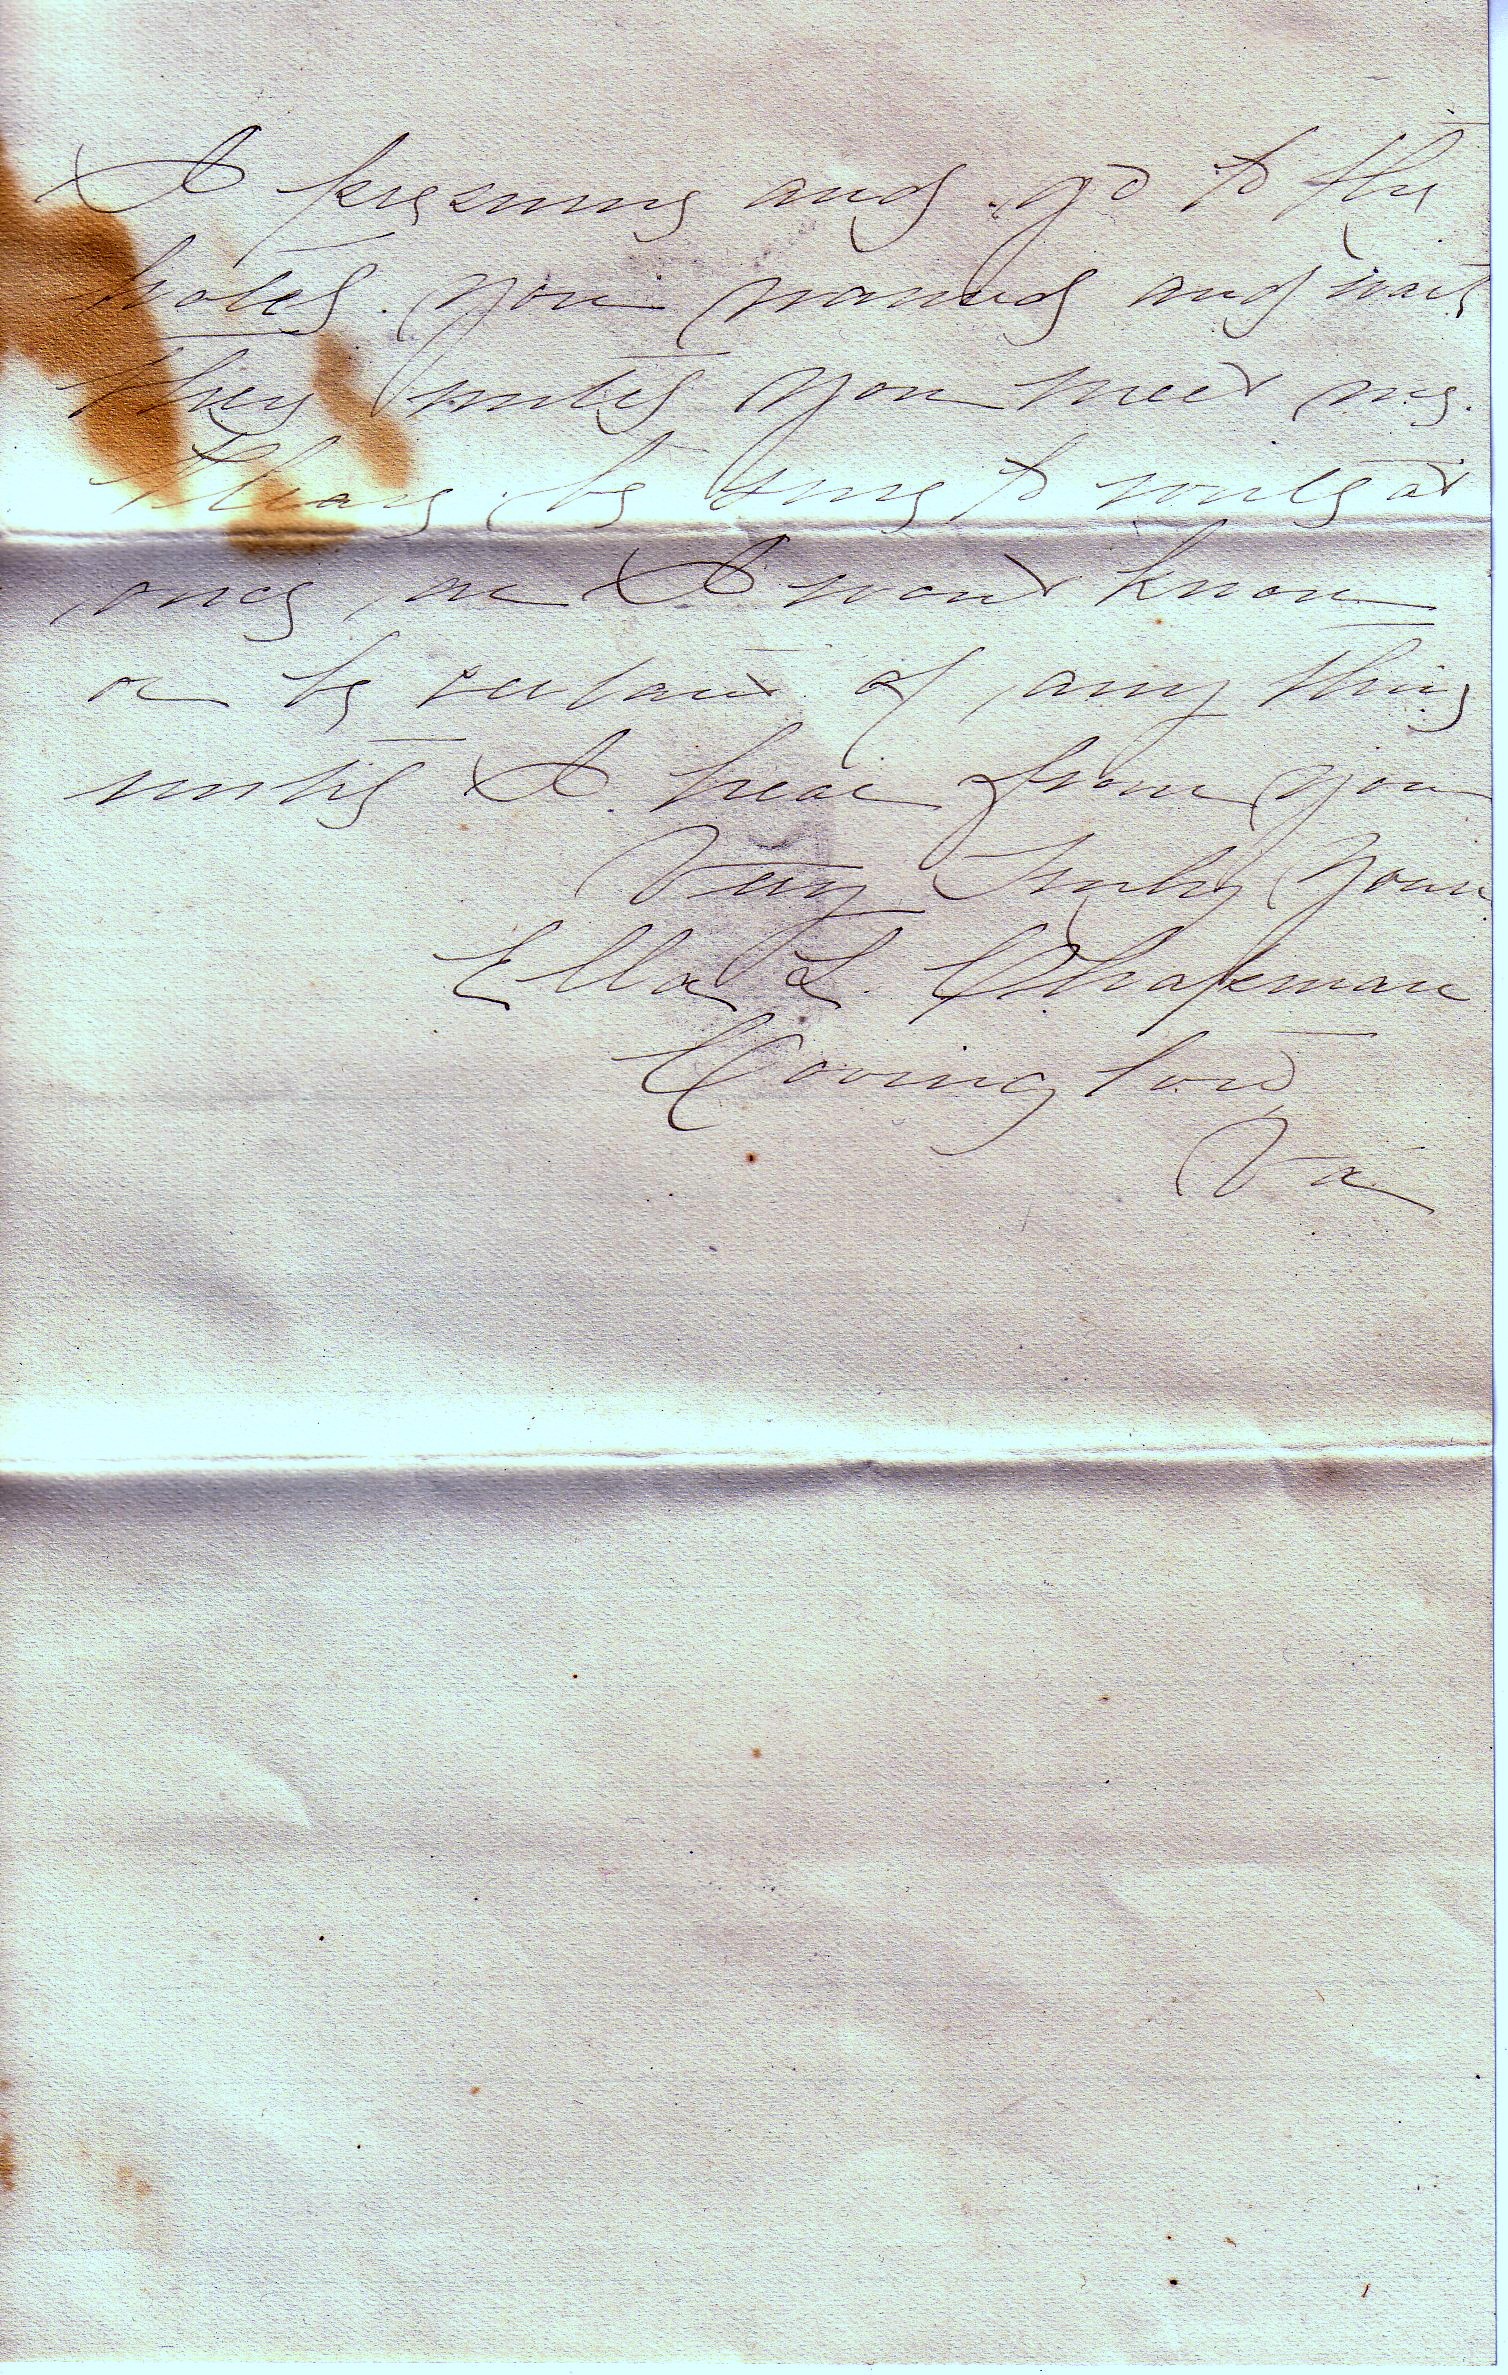 I presume and go to the
hotel you named and wait
there until you meet me.
Please be sure to write at
once or I wont know
or be certain of any thing
until I hear from you
Very Truly Yours
Ella L. Chapman
Covington
Va